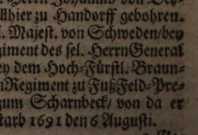 Herrn Johanno von Bey-
llhier zu Handorff gebohren.
l. Majest. von Schweden/bey
giment des sel. HerrnGeneral
ey dem Hoch-Fürstl. Braun-
nRegiment zu FußFeld-Pre-
zum Scharnbeck/ von da er
starb 1691 den 6 Augusti.